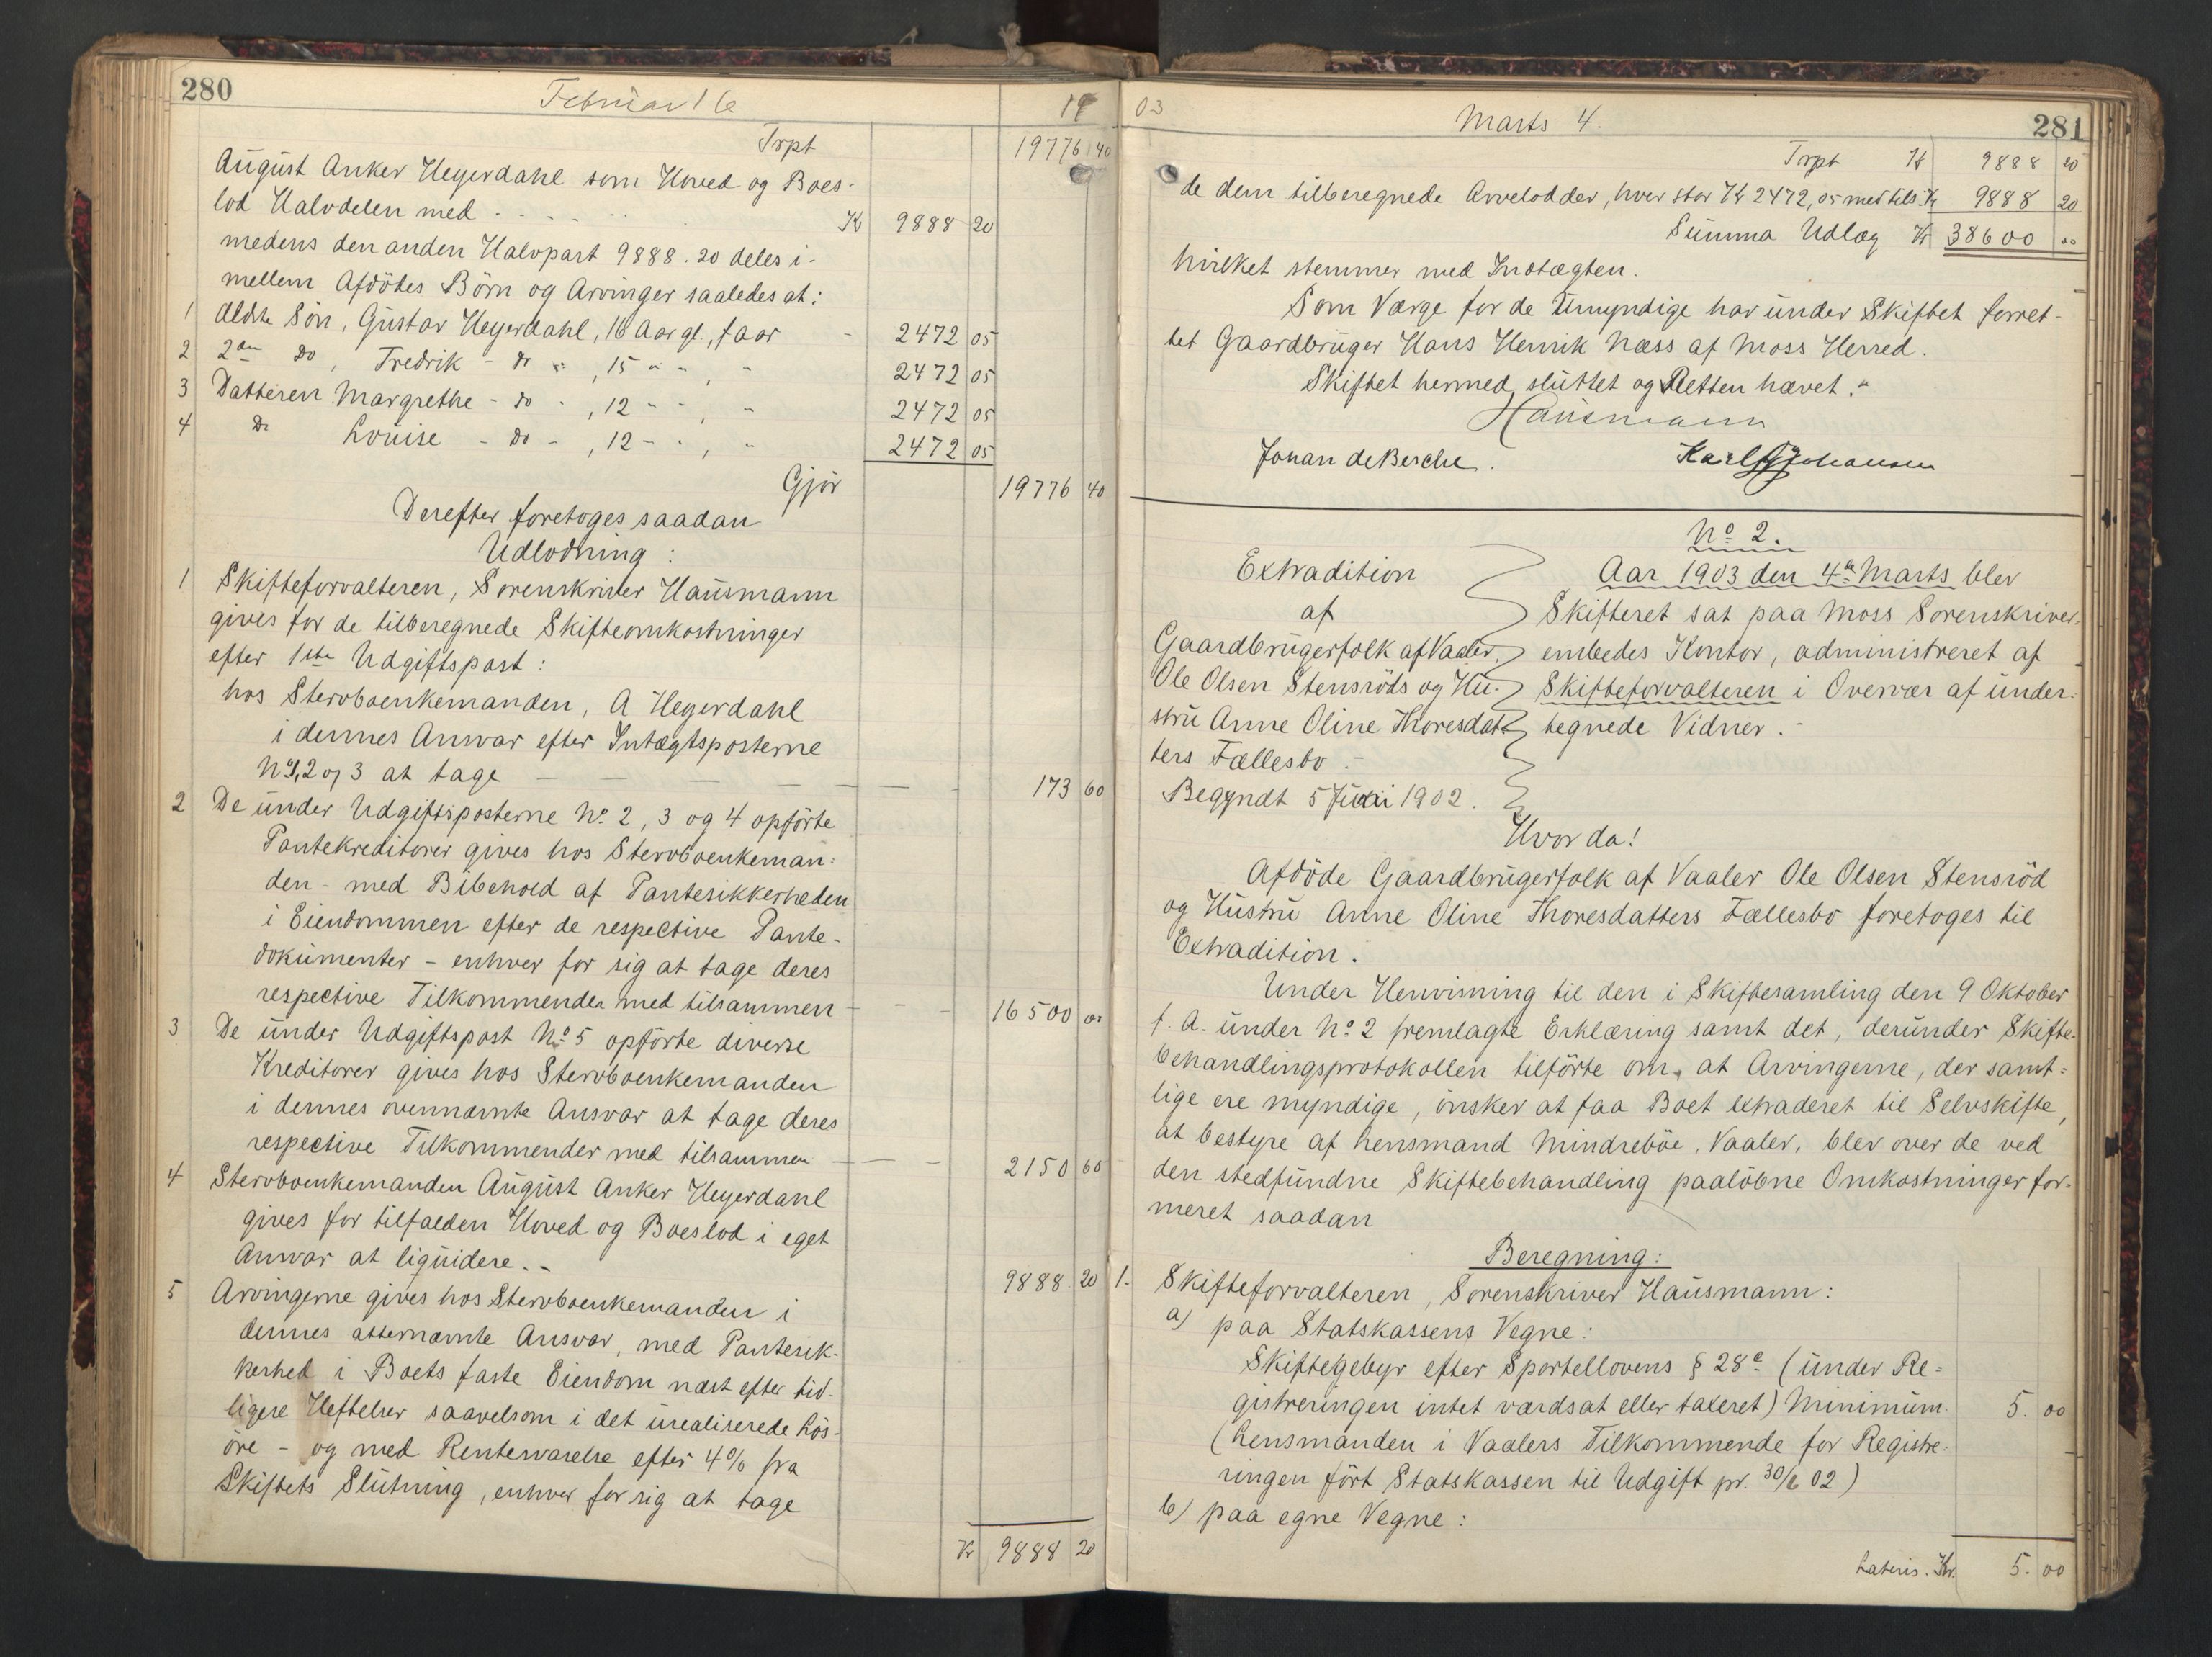 280
Februar 16
19
Trpt 19776 40
August Anker Heyerdahl som Hoved og Boes-
lod Halvdelen med . . . . . Kr 9888 20
medens den anden Halvpart 9888.20 deles i-
mellem Afdødes Börn og Arvinger saaledes at:
1 Ældste Sön, Gustav Heyerdahl, 16 Aar gl., faar - 2472 05
2 2den do, Fredrik - do " , 15 " " , " 2472 05
3 Datteren Margrethe - do - , 12 - - , " 2472 05
4 do Louise - do - , 12 - - , " 2472 05
Gjör 19776 40
Derefter foretoges saadan
Udlodning:
1 Skifteforvalteren, Sorenskriver Hausmann
gives for de tilberegnede Skifteomkostninger
efter 1ste Udgiftspost:
hos Stervboenkemanden, A Heyerdahl
i dennes Ansvar efter Indtægtsposterne
No 1, 2 og 3 at tage — — — 173 60
2 De under Udgiftsposterne No 2, 3 og 4 opførte
Pantekreditorer gives hos Stervboenkeman=
den - med Bibehold af Pantesikkerheden
i Eiendommen efter de respective Pante-
dokumenter - enhver for sig at tage deres
respective Tilkommender med tilsammen - - 16500 00
3 De under Udgiftspost No 5 opførte diverse
Kreditorer gives hos Stervboenkemanden
i dennes ovennævnte Ansvar at tage deres
respective Tilkommender med tilsammen — — - 2150 60
4 Stervboenkemanden August Anker Heyerdahl
gives for tilfalden Hoved og Boeslod i eget
Ansvar at liquidere. - 9888 20
5 Arvingerne gives hos Stervboenkemanden i
dennes atternævnte Ansvar, med Pantesik-
kerhed i Boets faste Eiendom næst efter tid-
ligere Heftelser saavelsom i det urealiserede Lös-
öre - og med Rentesvarelse efter 4% fra
Skiftets Slutning, enhver for sig at tage
Kr 9888 20
03
Marts 4.
281
Trpt Kr 9888 20
de dem tilberegnede Arvelodder, hver stor Kr 2472,05 med tils. Kr 9888 20
Summa Udlæg Kr 38600 00
hvilket stemmer med Indtægten.
Som Værge for de Umyndige har under Skiftet forret-
tet Gaardbruger Hans Henrik Næss af Moss Herred.
Skiftet hermed sluttet og Retten hævet. -
Hausmann
Johan de Besche. Karl G Johansen
No 2.
Extradition
af
Gaardbrugerfolk af Vaaler,
Ole Olsen Stensröds og Hu-
stru Anne Oline Thoresdat-
ters Fællesbo. -
Begyndt 5 Juni 1902.
Aar 1903 den 4de Marts blev
Skifteret sat paa Moss Sorenskriver-
embedes Kontor, administreret af
Skifteforvalteren i Overvær af under-
tegnede Vidner. -
Hvor da!
Afdöde Gaardbrugerfolk af Vaaler Ole Olsen Stensröd
og Hustru Anne Oline Thoresdatters Fællesbo foretoges til
Extradition.
Under Henvisning til den i Skiftesamling den 9 Oktober
f. A. under No 2 fremlagte Erklæring samt det, derunder Skifte-
behandlingsprotokollen tilförte om, at Arvingerne, der samt=
lige ere myndige, önsker at faa Boet extraderet til Selvskifte,
at bestyre af Lensmand Mindreböe, Vaaler, blev over de ved
den stedfundne Skiftebehandling paalöbne Omkostninger for-
meret saadan
Beregning:
1. Skifteforvalteren, Sorenskriver Hausmann:
a) paa Statskassens Vegne:
Skiftegebyr efter Sportellovens § 28c (under Re=
gistreringen intet værdsat eller taxeret) Minimum. 5. 00
(Lensmanden i Vaalers Tilkommende for Registre-
ringen fört Statskassen til Udgift pr. 30/6 02)
b) paa egne Vegne:
Lateris. Kr. 5. 00